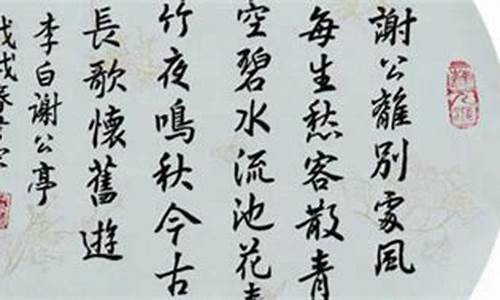 謝公離別處風
每生愁客散青
空碧水流池花
竹夜鳴秋今古
長歌懷舊遊
李白謝公亭
戊戌春